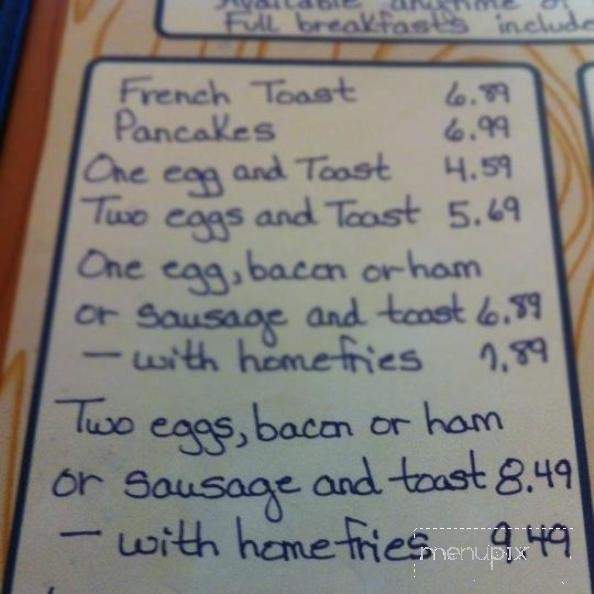 Available anytime of
Full breakfasts include
French Toast 6.89
Pancakes 6.99
One egg and Toast 4.59
Two eggs and Toast 5.69
One egg, bacon or ham
or sausage and toast 6.89
- with homefries 7.89
Two eggs, bacon or ham
or sausage and toast 8.49
- with homefries 9.49
menupix